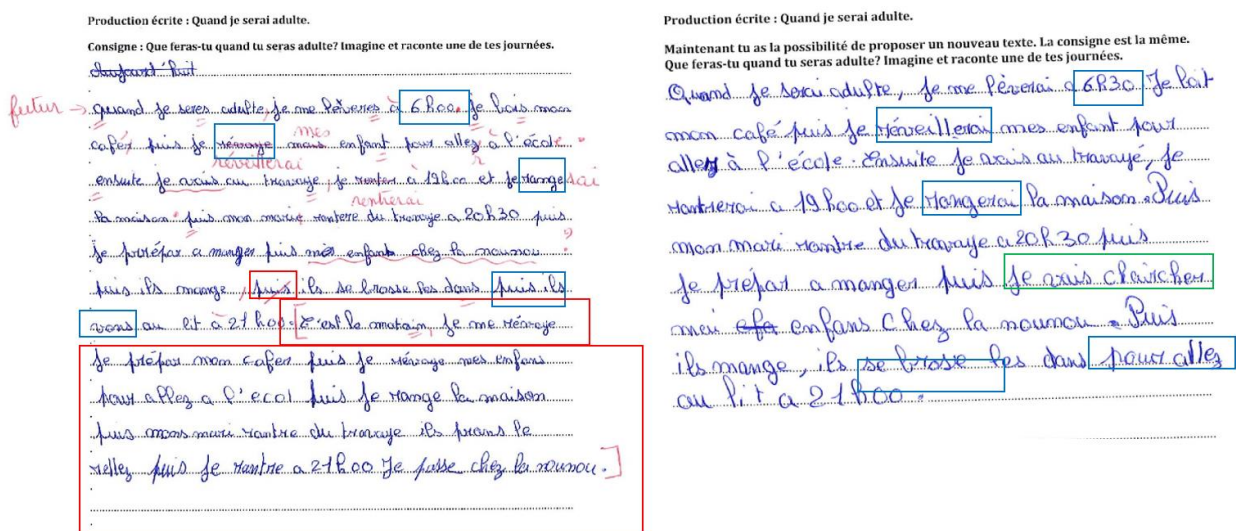 Production écrite : Quand je serai adulte.
Consigne : Que feras-tu quand tu seras adulte? Imagine et raconte une de tes journées.
Aujourd'huit
futur → Quand je seres adulte, je me lèveres à 6h00. je bois mon
mes
cafér, puis je révraye mans enfant pour allez à l'école.
réveillerai
ensuite je vais au travaye, je renter à 19h00 et je range rai
rentrerai
la maison. puis mon marie rentere du travaye a 20h30 puis
je prrépar a manger puis mes enfant chez la nounou ?
puis ils mange, puis ils se brosse les dans puis ils
vons au lit à 21h00. [C'est le matain, je me révraye
je prépar mon cafer puis je révraye mes enfans
pour allez a l'écol puis je range la maison
puis mons mari rantre du travaye ils prans le
rellez puis je rantre a 21h00 Je passe chez la nounou.]
Production écrite : Quand je serai adulte.
Maintenant tu as la possibilité de proposer un nouveau texte. La consigne est la même.
Que feras-tu quand tu seras adulte? Imagine et raconte une de tes journées.
Quand je serai adulte, je me lèverai a 6h30 Je boit
mon café puis je réveillerai mes enfant pour
allez à l'école. Ensuite je vais au travayé, je
rantrerai a 19h00 et je rangerai la maison. Puis
mon mari rantre du travaye a 20h30 puis
je prépar a manger puis je vais chaircher
mei efa enfans chez la nounou. Puis
ils mange, ils se brose les dans pour allez
au lit a 21h00.